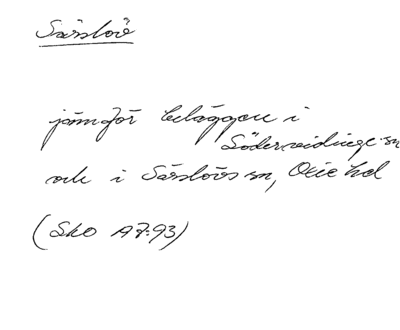 Särslöv
jämför beläggen i
Södervidinge sn
och i Särslövs sn, Oxie hd
(Sko A7:93)